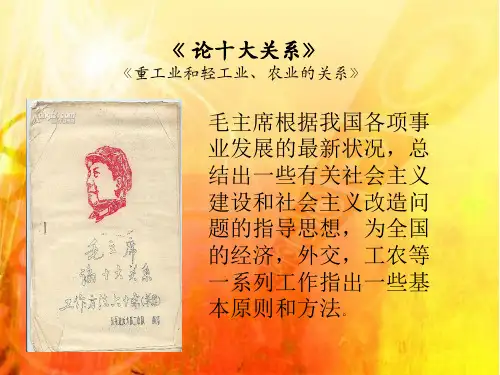 《论十大关系》
《重工业和轻工业、农业的关系》
毛主席根据我国各项事
业发展的最新状况，总
结出一些有关社会主义
建设和社会主义改造问
题的指导思想，为全国
的经济，外交，工农等
一系列工作指出一些基
本原则和方法。
毛主席
论十大关系
工作方法六十条